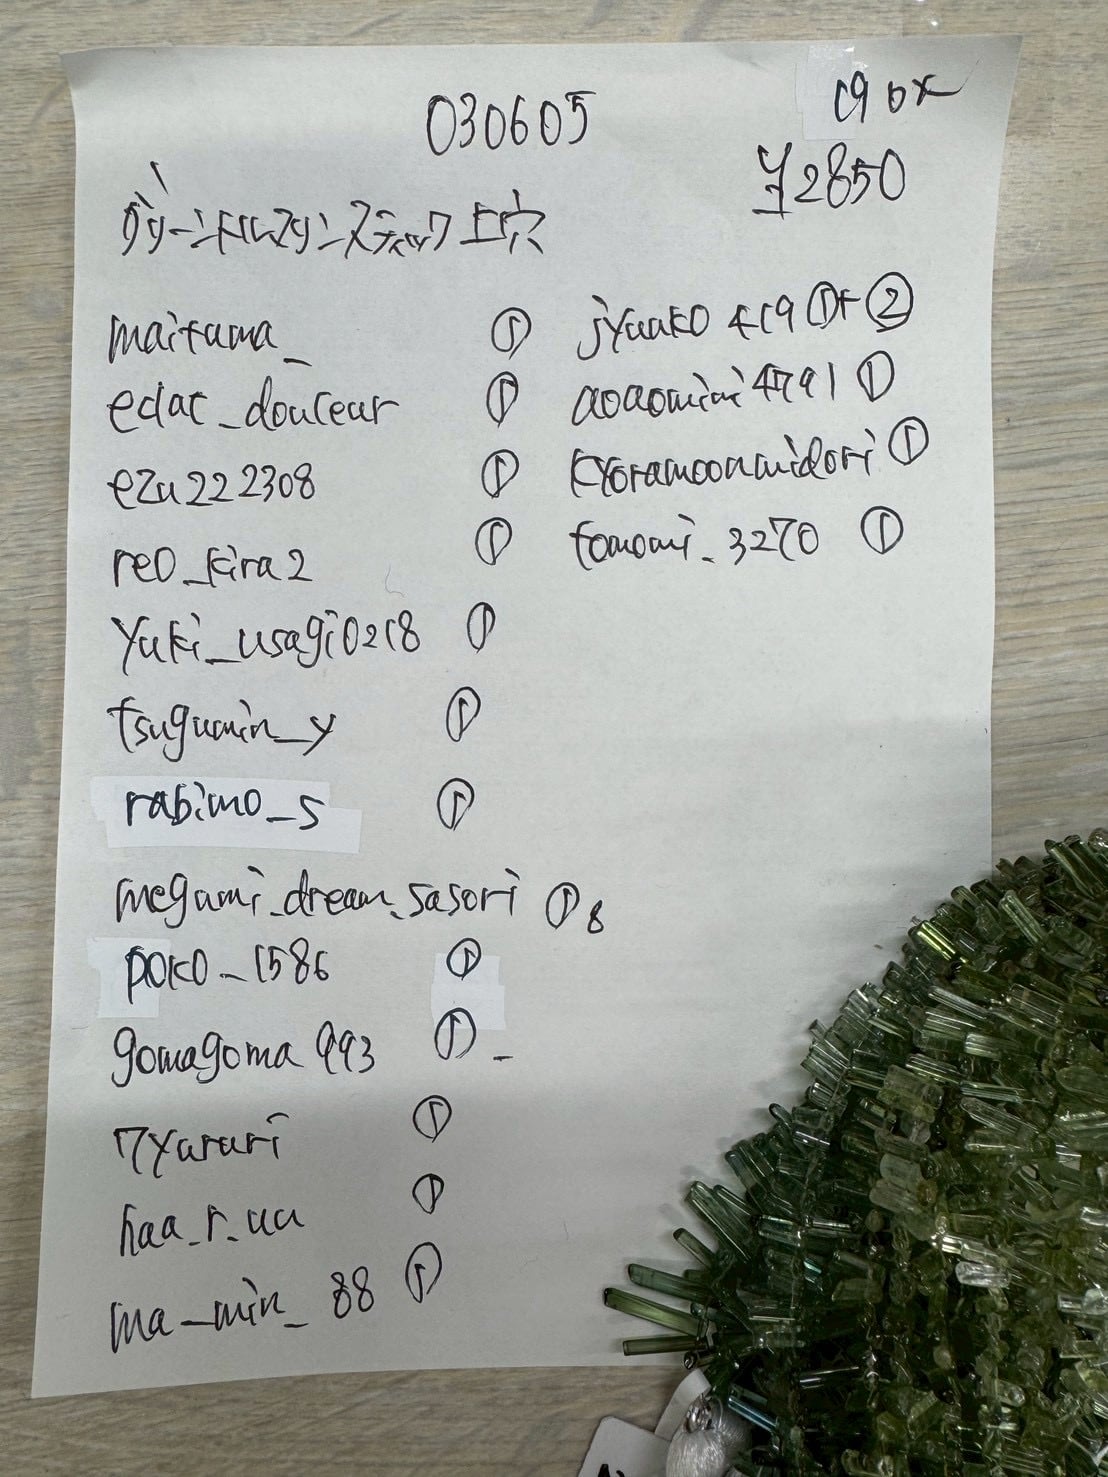 030605
19 ox
¥2850
グリーントルマリンスティック上穴
maitama_ ①
eclat_douceur ①
ezu222308 ①
reo_kira2 ①
yuki_usagi0218 ①
tsugumin_y ①
rabimo_s ①
megumi_dream_sasori ① 8
poko_1586 ①
gomagoma993 ① -
7yaruri ①
haa_r.uu ①
ma_min_88 ①
jyuako419 ①+②
aoaomini4791 ①
kyoramoonmidori ①
tomomi_3270 ①